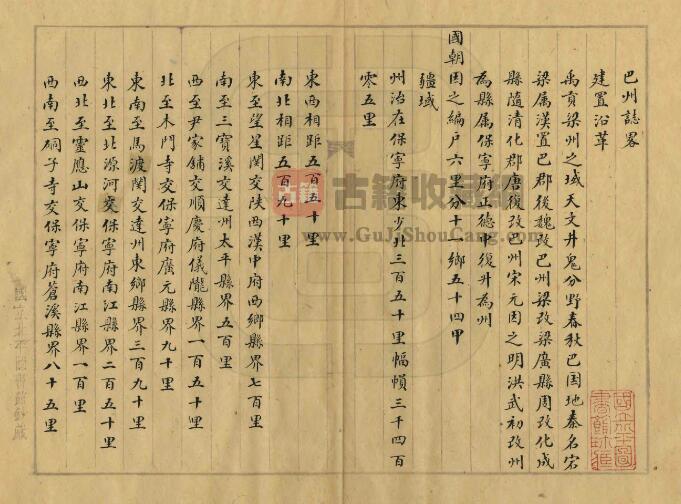 巴州誌畧
建置沿革
禹貢梁州之域天文井鬼分野春秋巴国地秦名宕
梁属漢置巴郡後魏改巴州梁改梁廣縣周改化成
縣隨清化郡唐復改巴州宋元因之明洪武初改州
為縣属保寧府正德中復升為州
國朝因之編户六里分十一鄉五十四甲
疆域
州治在保寧府東少北三百五十里幅幀三千四百
零五里
東西相距五百五十里
南北相距五百九十里
東至望星関交陕西漢中府西鄉縣界七百里
南至三寶溪交達州太平縣界五百里
西至尹家鋪交順慶府儀隴縣界一百五十里
北至木門寺交保寧府廣元縣界九十里
東南至馬渡関交達州東鄉縣界三百九十里
東北至北源河交保寧府南江縣界二百五十里
西北至靈應山交保寧府南江縣界一百里
西南至硐子寺交保寧府蒼溪縣界八十五里
古籍 古籍收藏網
www.GuJiShouCang.com